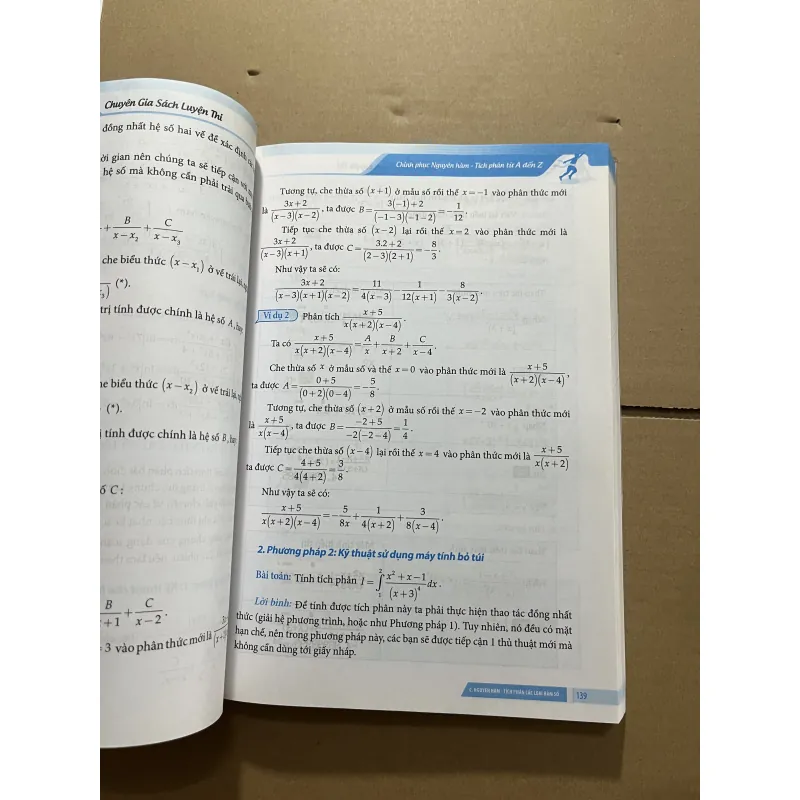 Chuyên Gia Sách Luyện Thi
đồng nhất hệ số hai vế để xác định
ời gian nên chúng ta sẽ tiếp cận với
hệ số mà không cần phải trải qua
+ B/(x−x₂) + C/(x−x₃)
che biểu thức (x−x₁) ở vế trái lại,
(*).
trị tính được chính là hệ số A, hay
he biểu thức (x−x₂) ở vế trái lại,
(*).
ị tính được chính là hệ số B, hay
ố C:
B/(x+1) + C/(x−2).
=3 vào phân thức mới là
Chinh phục Nguyên hàm - Tích phân từ A đến Z
Tương tự, che thừa số (x+1) ở mẫu số rồi thế x=−1 vào phân thức mới
là (3x+2)/((x−3)(x−2)), ta được B = (3(−1)+2)/((−1−3)(−1−2)) = −1/12.
Tiếp tục che thừa số (x−2) lại rồi thế x=2 vào phân thức mới là
(3x+2)/((x−3)(x+1)), ta được C = (3.2+2)/((2−3)(2+1)) = −8/3.
Như vậy ta sẽ có:
(3x+2)/((x−3)(x+1)(x−2)) = 11/(4(x−3)) − 1/(12(x+1)) − 8/(3(x−2)).
Ví dụ 2 Phân tích (x+5)/(x(x+2)(x−4)).
Ta có (x+5)/(x(x+2)(x−4)) = A/x + B/(x+2) + C/(x−4).
Che thừa số x ở mẫu số và thế x=0 vào phân thức mới là (x+5)/((x+2)(x−4)),
ta được A = (0+5)/((0+2)(0−4)) = −5/8.
Tương tự, che thừa số (x+2) ở mẫu số rồi thế x=−2 vào phân thức mới
là (x+5)/(x(x−4)), ta được B = (−2+5)/(−2(−2−4)) = 1/4.
Tiếp tục che thừa số (x−4) lại rồi thế x=4 vào phân thức mới là (x+5)/(x(x+2))
ta được C = (4+5)/(4(4+2)) = 3/8.
Như vậy ta sẽ có:
(x+5)/(x(x+2)(x−4)) = −5/(8x) + 1/(4(x+2)) + 3/(8(x−4)).
2. Phương pháp 2: Kỹ thuật sử dụng máy tính bỏ túi
Bài toán: Tính tích phân I = ∫₁² (x²+x−1)/(x+3)⁴ dx.
Lời bình: Để tính được tích phân này ta phải thực hiện thao tác đồng nhất
thức (giải hệ phương trình, hoặc như Phương pháp 1). Tuy nhiên, nó đều có mặt
hạn chế, nên trong phương pháp này, các bạn sẽ được tiếp cận 1 thủ thuật mới mà
không cần dùng tới giấy nháp.
2. NGUYÊN HÀM - TÍCH PHÂN CÁC LOẠI HÀM SỐ 139